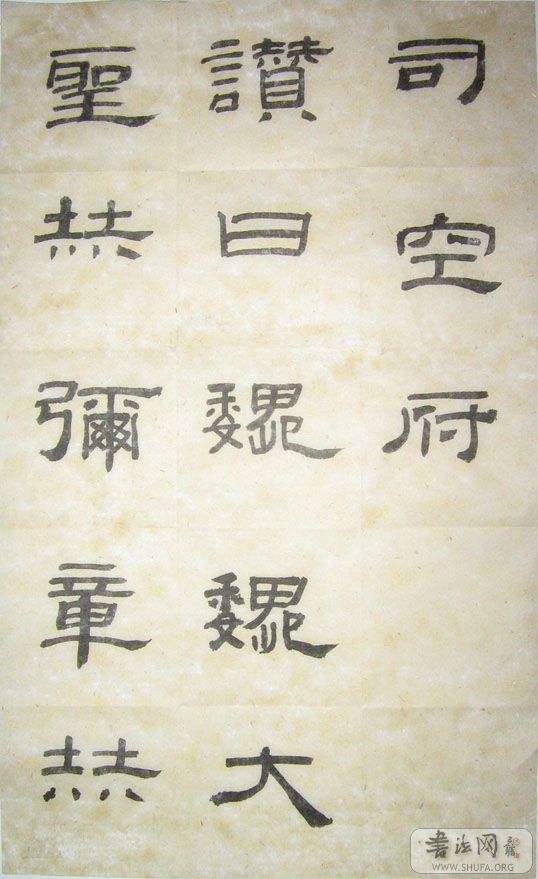 司空府
讚曰巍巍大
聖赫彌章赫
书法网
WWW.SHUFA.ORG